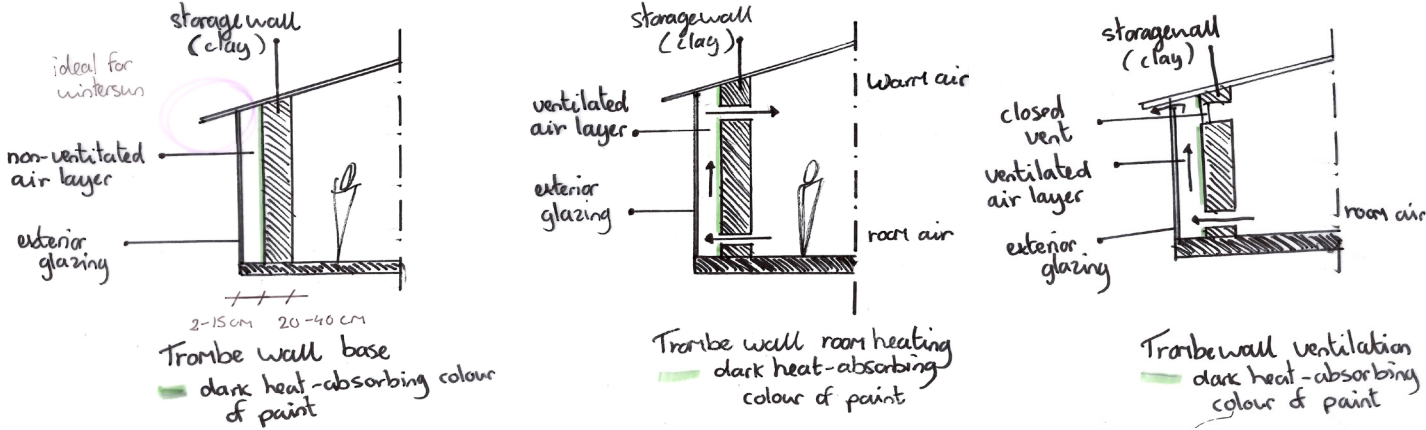 storage wall
(clay)
ideal for
wintersun
non-ventilated
air layer
exterior
glazing
2-15 cm
20-40 cm
Trombe wall base
dark heat-absorbing colour
of paint
storage wall
(clay)
Warm air
ventilated
air layer
exterior
glazing
room air
Trombe wall room heating
dark heat-absorbing
colour of paint
storage wall
(clay)
closed
vent
ventilated
air layer
room air
exterior
glazing
Trombe wall ventilation
dark heat-absorbing
colour of paint